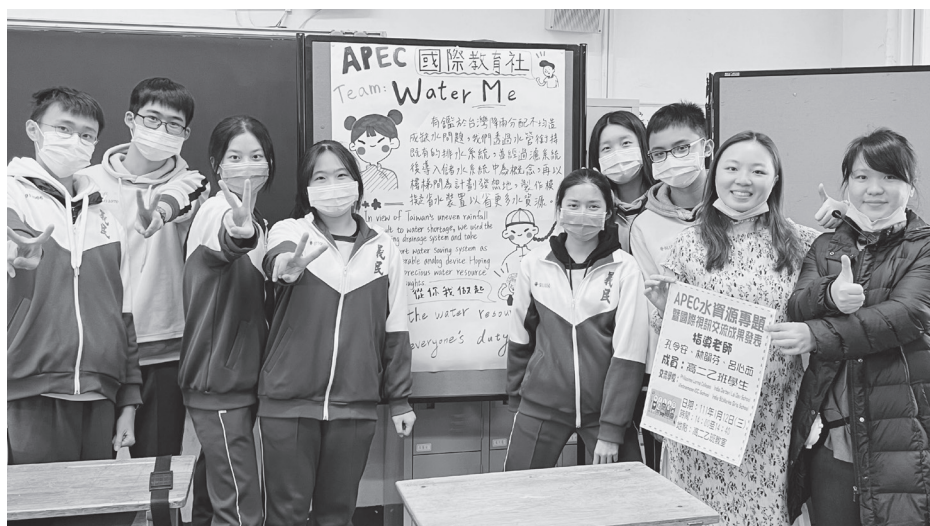 APEC 國際教育社
Team: Water Me
有鑑於台灣降雨分配不均造
成缺水問題,我們透過水管維持
既有的排水系統,並經過濾系統
後導入儲水系統中為概念,再以
樓梯間為計劃發想地,製作模
擬省水裝置以有更多水資源。
In view of Taiwan's uneven rainfall
to water shortage, we used the
drainage system and take
water saving system as
analog device Hoping
precious water resource
從你我做起
the water resou
everyone's duty
義民
義民
義民
APEC水資源專題
暨國際視訊交流成果發表
指導老師
成員:高二乙班學生
日期:111年1月12日(三)
地點:高二乙班教室